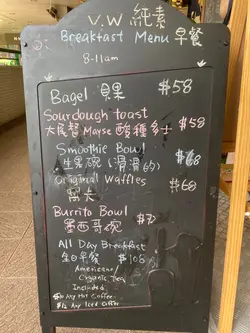 V.W 純素
Breakfast Menu 早餐
8-11am
Bagel 貝果 $58
Sourdough toast
$58
酸種多士
Smoothie Bowl
生果碗 (滑滑的) $68
Original Waffles
窩夫 $68
Burrito Bowl
墨西哥碗
All Day Breakfast
全日早餐 $108
Americano/
Organic Tea
Included
Any Hot Coffee
$12 Any Iced Coffee